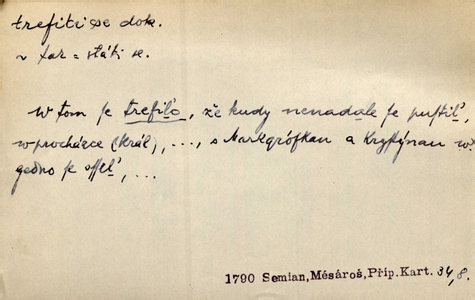 trefiti se dok.
v tar = státi se.
w tom se trefilo, že kudy nenadale se pustil,
w procházce (Král), ..., s Markgrófkau a Krystýnau w
gedno se ssel, ...
1790 Semian, Mésároš, Příp. Kart. 34, 8.